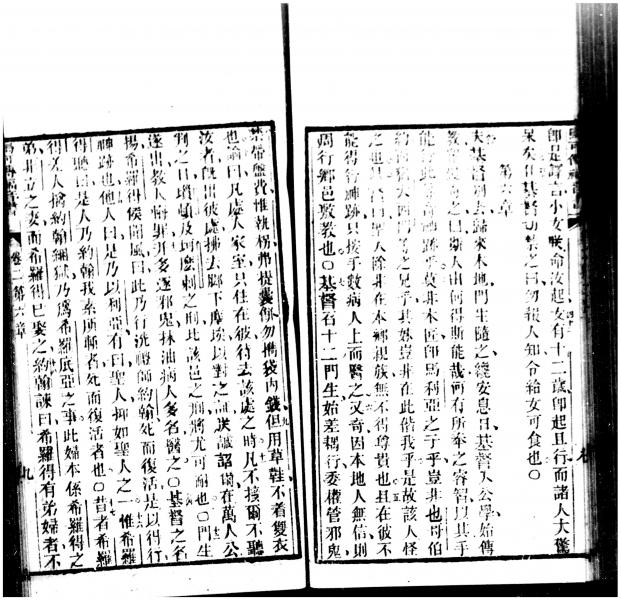 卽是譯言小女朕命汝起女有十二歲卽起且行而諸人大驚
呆矣○基督切禁之曰勿報人知令給女可食也○
第六章
夫基督別去歸來本地門生隨之儻安息日基督入公學始傳
教衆奇之曰斯人由何得斯能哉何有所奉之睿智以其手
能行此神跡乎莫非木匠卽馬利亞之子乎豈非也哥伯
約西猶大西門之兄乎其妹豈非在此偕我乎是故該人怪
之也○曰聖人除非在本鄉親族無不得尊貴也且在彼不
能得行神跡只按手數病人上而醫之又奇因本地人無信則
周行鄉邑敷教也○基督召十二門生始差耦行委權管邪鬼
禁帶盤費惟執柺弗提囊餅勿攜袋內錢但用草鞋不着雙衣
也諭曰凡處人家至只住在彼待去該處之時凡不接爾不聽
汝者旣出彼處拂去脚下塵埃以對之証我誠詔爾在萬人公
判之日瑣頓及坷麽剌之刑比該邑之刑將尤可耐也○門生
遂出教人悔罪并多逐邪鬼抹油病人多名醫之○基督之名
揚希羅得候聞風曰此乃行洗禮師約翰死而復活是以得行
神跡也他人曰是乃以利亞有曰聖人抑如聖人之一惟希羅
得聽曰是人乃約翰我系所斬者死而復活者也○昔者希羅
得差人擒約翰綑獄乃爲希羅底亞之事此婦本係希羅得之
弟非立之妻而希羅得已娶之約翰諫曰希羅得有弟婦者不
卷二第六章 九